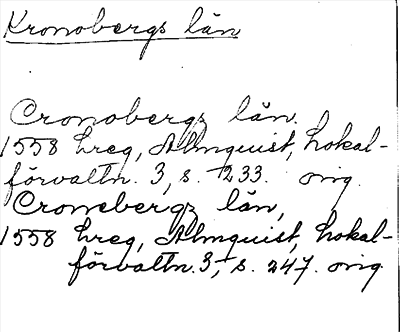 Kronobergs län
Cronobergz län.
1558 Lreg, Almquist, Lokal-
förvaltn. 3, s. 233. orig.
Cronebergz län,
1558 Lreg, Almquist, Lokal-
förvaltn. 3, s. 247. orig.